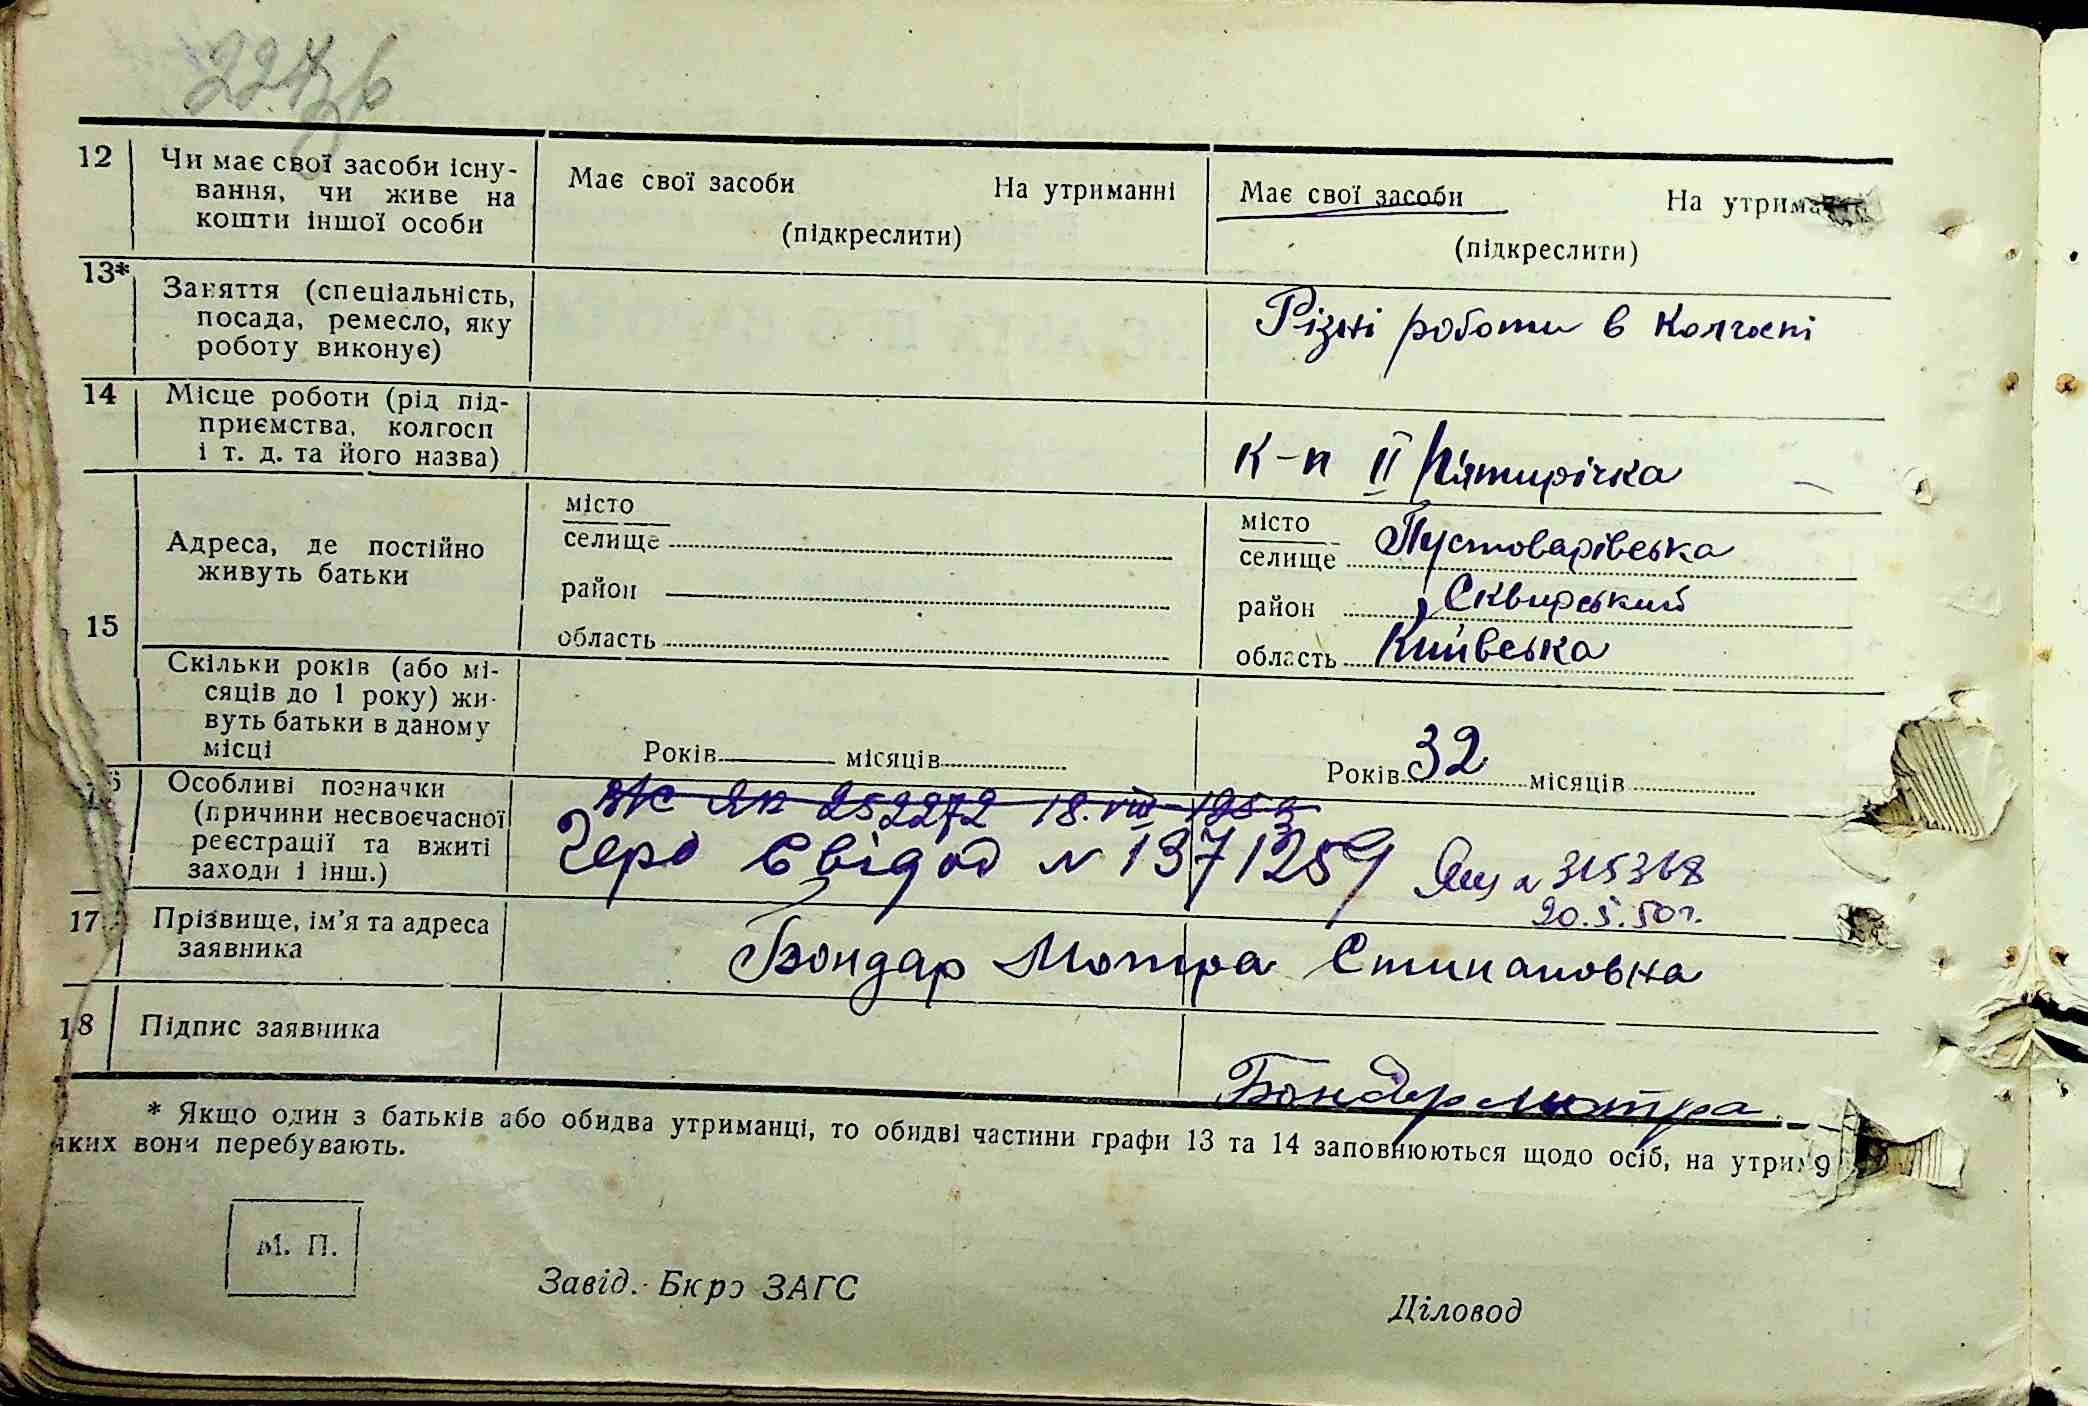 12 Чи має свої засоби існу-
вання, чи живе на
кошти іншої особи
Має свої засоби На утриманні
(підкреслити)
Має свої засоби На утрима
(підкреслити)
13* Заняття (спеціальність,
посада, ремесло, яку
роботу виконує)
Різні роботи в колгоспі
14 Місце роботи (рід під-
приємства, колгосп
і т. д. та його назва)
к-п ІІ П'ятирічка
15 Адреса, де постійно
живуть батьки
місто
селище
район
область
місто
селище Пустоварівська
район Сквирський
область Київська
Скільки років (або мі-
сяців до 1 року) жи-
вуть батьки в даному
місці
Років місяців
Років 32 місяців
16 Особливі позначки
(причини несвоєчасної
реєстрації та вжиті
заходи і інш.)
ЯК 252272 18.VIII-1953
Свідод N 1371259
N 315368
20.5.50 г.
17 Прізвище, ім'я та адреса
заявника
Бондар Мотра Стипановна
18 Підпис заявника
Бондар Мотра
* Якщо один з батьків або обидва утриманці, то обидві частини графи 13 та 14 заповнюються щодо осіб, на утрим
яких вони перебувають.
М. П.
Завід. Бюро ЗАГС
Діловод